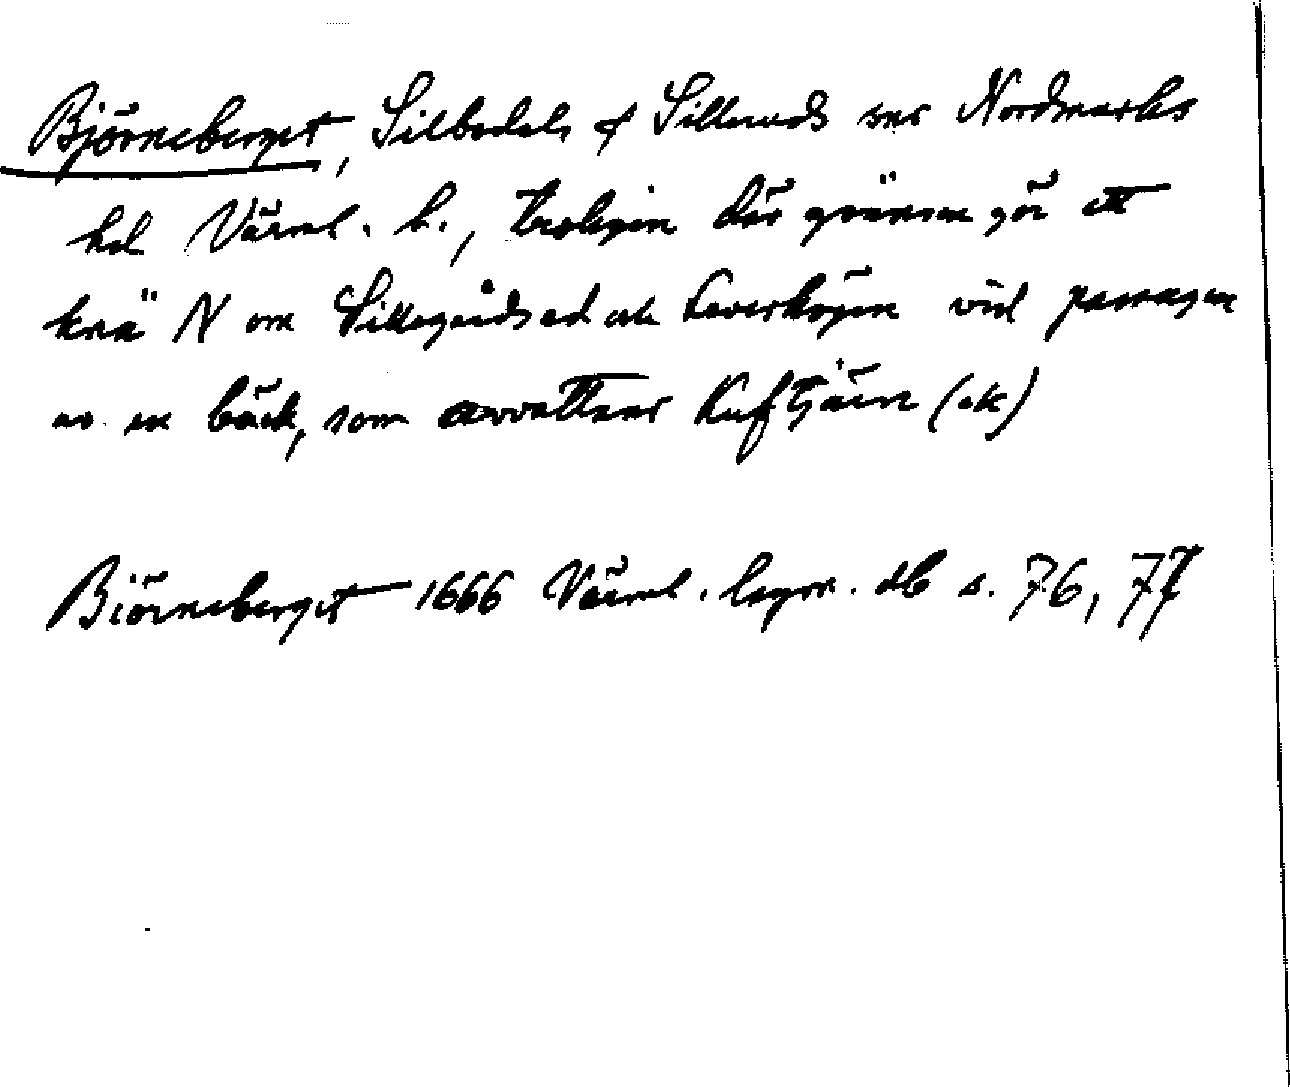 Björneberget, Silbodals o Silleruds snr Nordmarks
hd Värml. l., troligen där gränsen gör ett
knä N om Sillegårdsed och Leverhögen vid passagen
av en bäck, som avvattnar Kuftjärn (ek)
Biörneberget 1666 Värml. lagm. db s. 76, 77